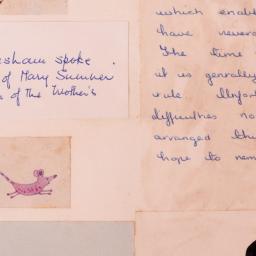 esham spoke.
of Mary Sumner
of the Mother's
which enabl
have never
The time
it is generally
rule
difficulties no
arranged thi
hope to rem